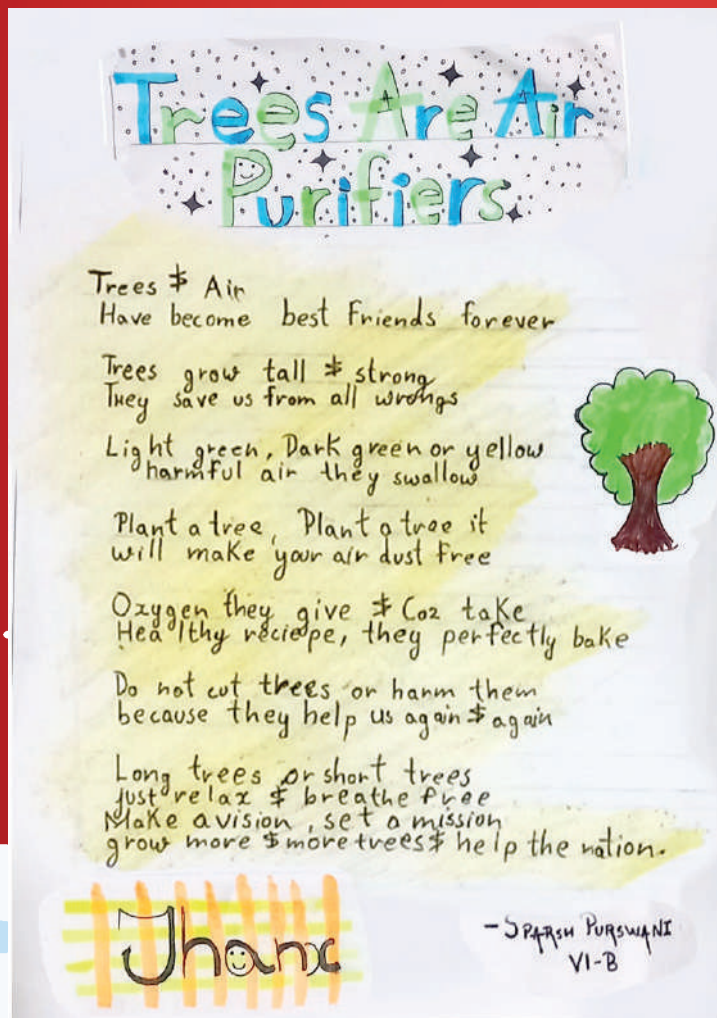 Trees Are Air
Purifiers
Trees & Air
Have become best Friends forever
Trees grow tall & strong
They save us from all wrongs
Light green, Dark green or yellow
harmful air they swallow
Plant a tree, Plant a tree it
will make your air dust free
Oxygen they give & Co2 take
Healthy reciepe, they perfectly bake
Do not cut trees or harm them
because they help us again & again
Long trees or short trees
just relax & breathe free
Make a vision, set a mission
grow more & more trees & help the nation.
Thanx
- SPARSH PURSWANI
VI-B